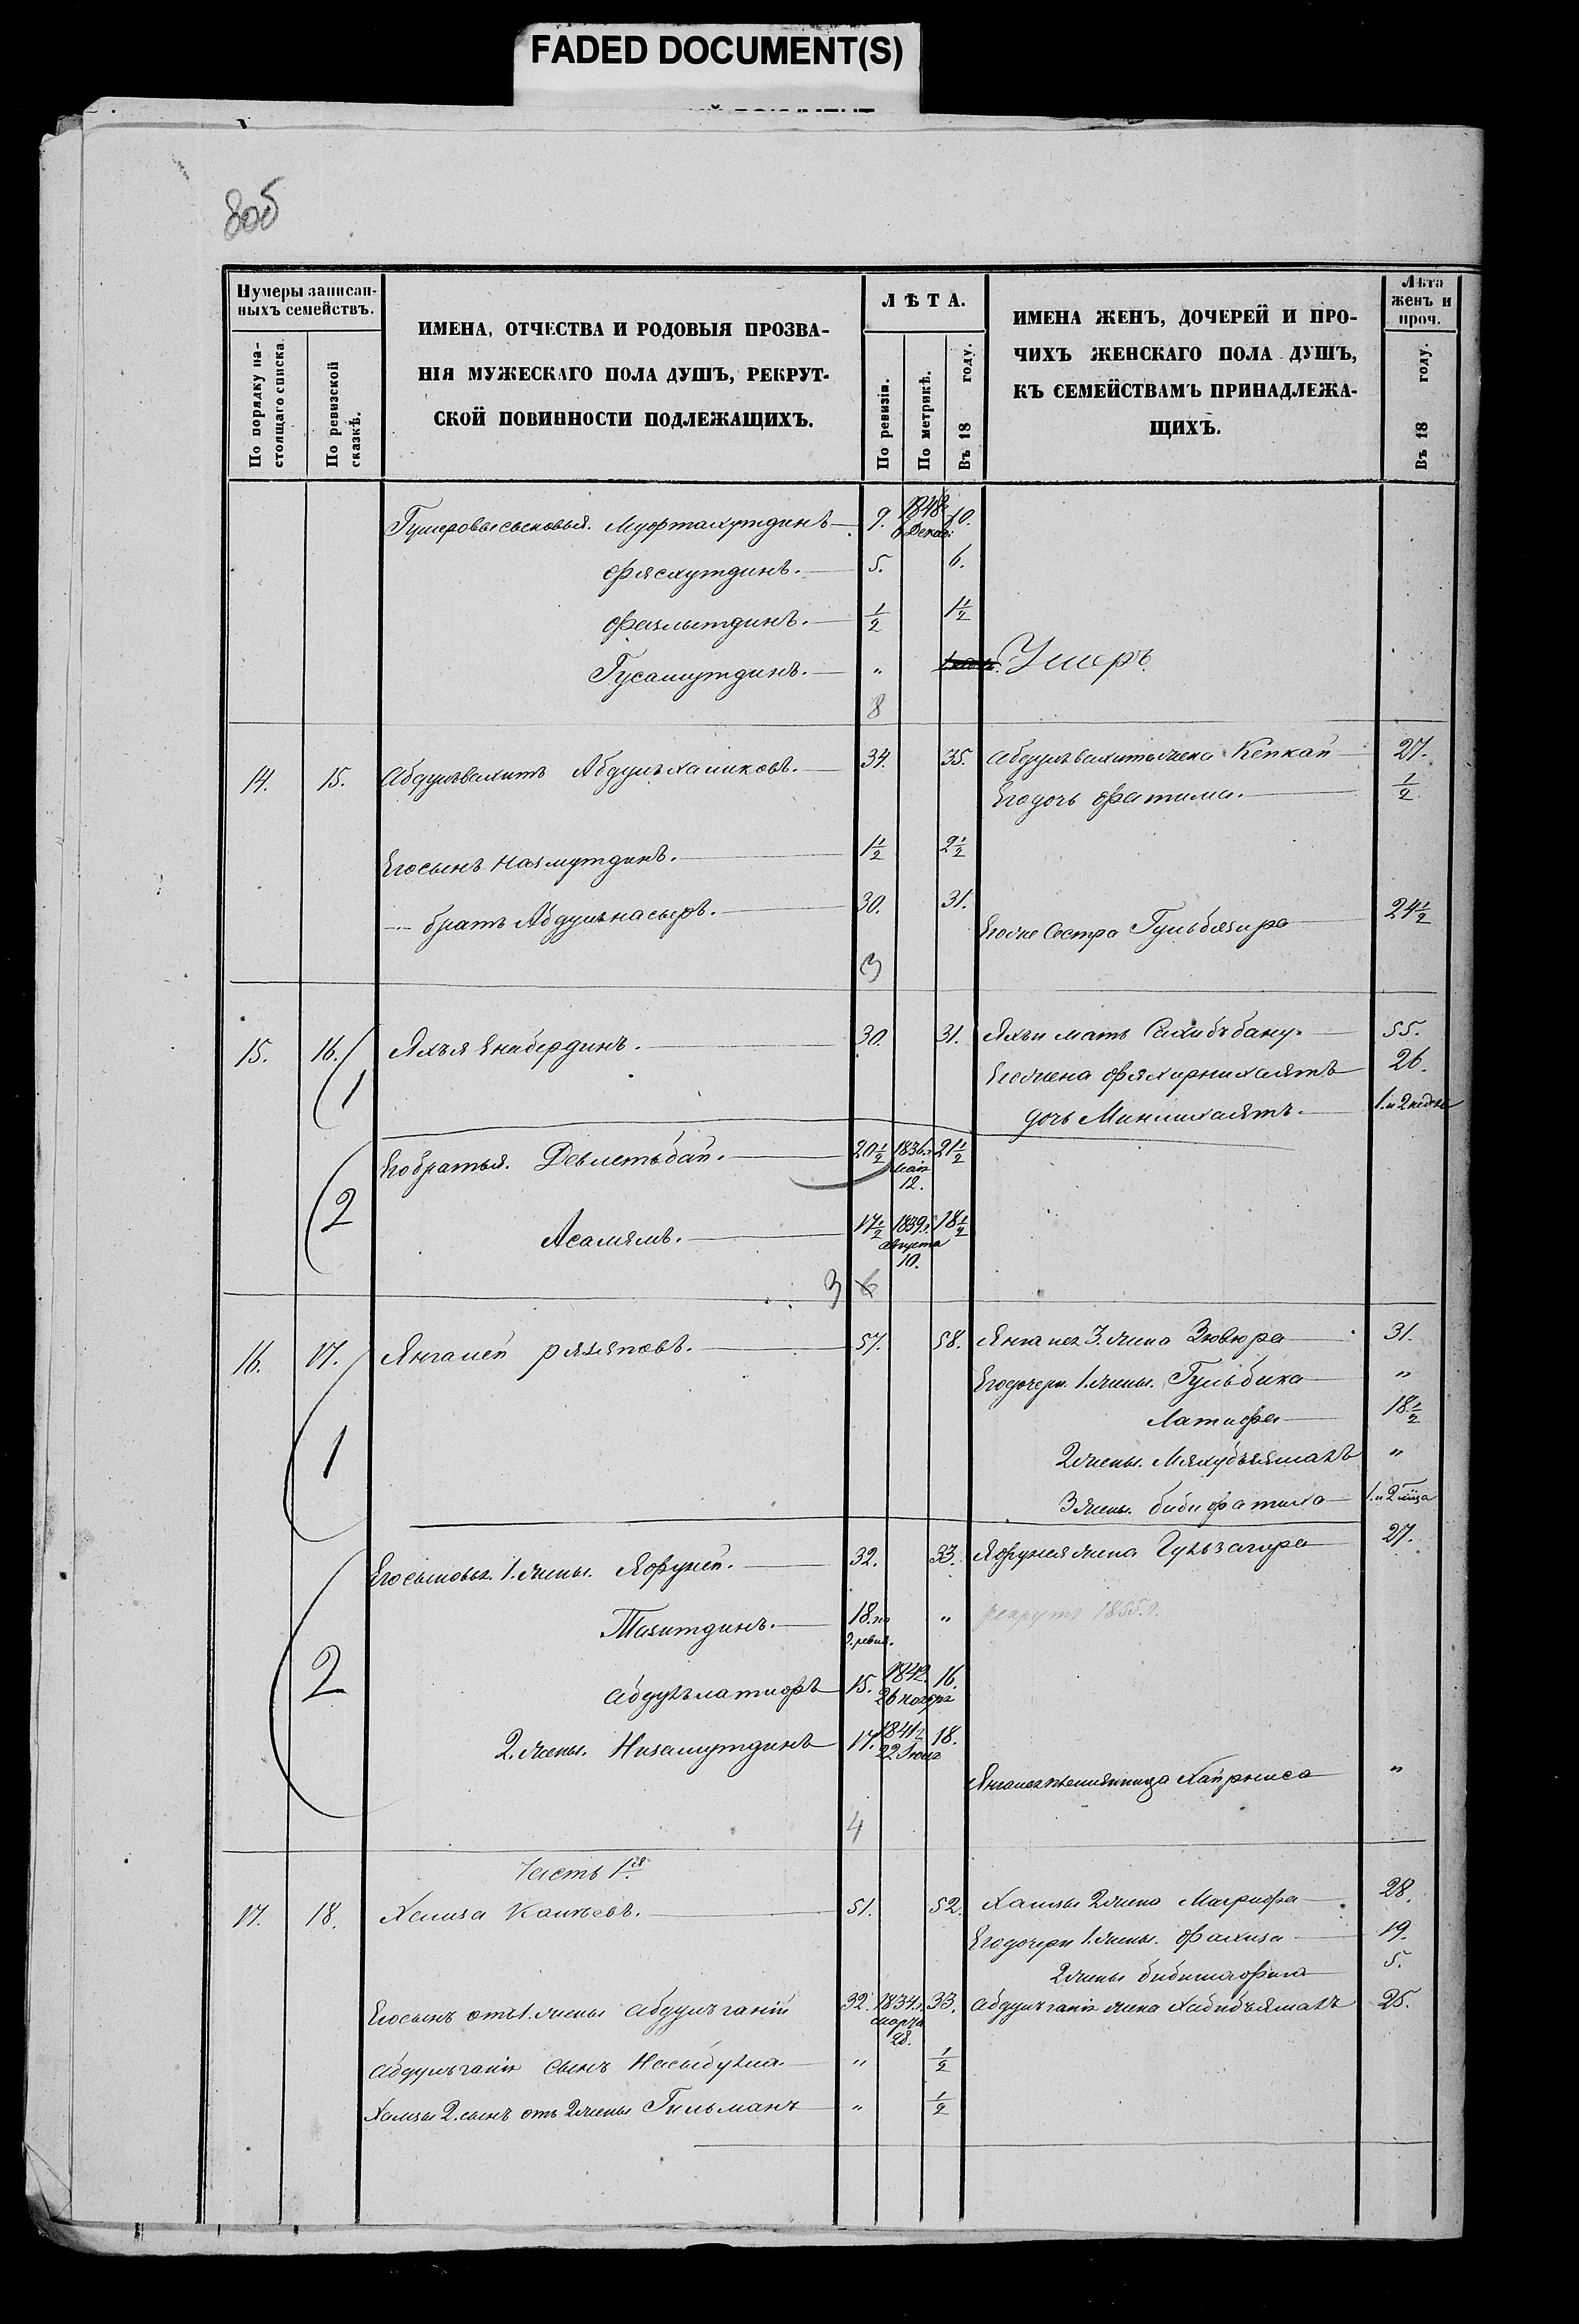 FADED DOCUMENT(S)
806
Нумеры записан-
ныхъ семействъ.
По порядку на-
стоящаго списка
По ревизской
сказкѣ.
ИМЕНА, ОТЧЕСТВА И РОДОВЫЯ ПРОЗВА-
НІЯ МУЖЕСКАГО ПОЛА ДУШЪ, РЕКРУТ-
СКОЙ ПОВИННОСТИ ПОДЛЕЖАЩИХЪ.
ЛѢТА.
По ревизіи.
По метрикѣ.
Въ 18 году.
ИМЕНА ЖЕНЪ, ДОЧЕРЕЙ И ПРО-
ЧИХЪ ЖЕНСКАГО ПОЛА ДУШЪ,
КЪ СЕМЕЙСТВАМЪ ПРИНАДЛЕЖА-
ЩИХЪ.
Лѣта
женъ и
проч.
Въ 18 году.
Гумеровы сыновья. Муфтахутдинъ 9. 1848 6 Декаб: 10.
Фясхутдинъ. 5. 6.
Фазлытдинъ. 1/2 1 1/2
Гусамутдинъ. " Умеръ
8
14. 15. Абдулвахитъ Абдулхаликовъ. 34. 35. Абдулвахита жена Кепкай 27.
Его дочь Фатима. 1/2
Его сынъ Назмутдинъ. 1 1/2 2 1/2
-- братъ Абдулнасыръ. 30. 31. Его же Сестра Гульбязира 24 1/2
3
15. 16. Яхъя Еникердинъ. 30. 31. Яхьи мать Сахибъ бану. 55.
1 Его жена Фяхирнихаятъ 26.
дочь Миннихаятъ. 1. и 2 недѣл
2 Его братья. Девлетьбай. 20 1/2 1836.г мая 12. 21 1/2
Асалямъ. 17 1/2 1839.г августа 10. 18 1/2
3 6
16. 17. Янгалей Рязяповъ. 57. 58. Янгалея 3. жена Зювюра 31.
1 Его дочери. 1. жены. Гульбика "
Латифа 18 1/2
2 жены. Мяхубъямалъ "
3 жены. Бибифатиха 1. и 2 мца
2 Его сыновья. 1. жены. Яфуней. 32. 33. Яфунея жена Гульзагира 27.
Тазитдинъ. 18. по 9. ревиз. " рекрутъ 1855.г.
Абдуллатифъ 15. 1842. 26 ноября 16.
2. жены. Низамутдинъ 17. 1841г 22 Июля 18.
Янгалея племянница Хайрниса "
4
Часть 1я
17. 18. Хамза Каипевъ. 51. 52. Хамзы 2 жена Магрифа 28.
Его дочери 1. жены. Фахиза 19.
2 жены Бибишарифа 5.
Его сынъ отъ 1. жены Абдулъганій 32. 1834.г марта 28. 33. Абдулганія жена Хабибъямалъ 25.
Абдулъганія сынъ Насыбулла " 1/2
Хамзы 2. сынъ отъ 2 жены Гильманъ " 1/2